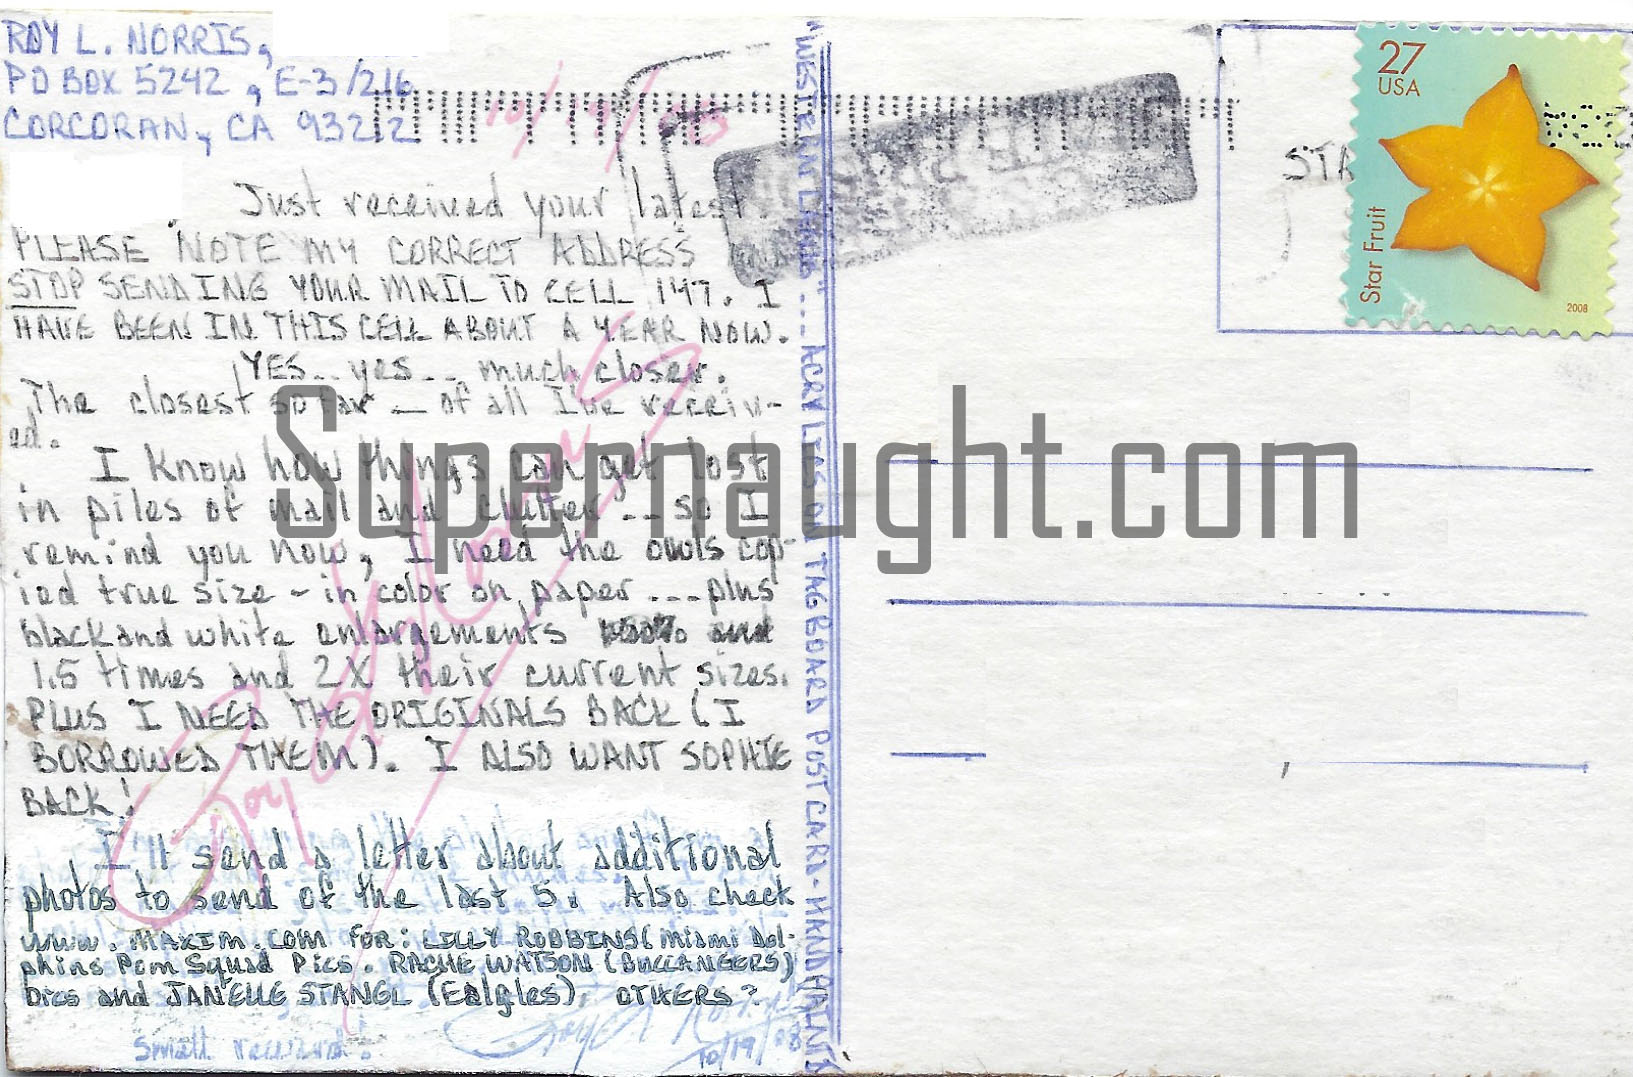 ROY L. NORRIS,
PO BOX 5242, E-3/216
CORCORAN, CA 93212
10/19/08
27
USA
Star Fruit
2008
STA
Just received your latest.
PLEASE NOTE MY CORRECT ADDRESS AND
STOP SENDING YOUR MAIL TO CELL 147. I
HAVE BEEN IN THIS CELL ABOUT A YEAR NOW.
YES.. yes... much closer.
The closest so far — of all I've receiv-
ed.
I know how things can get lost
in piles of mail and clutter... so I
remind you now, I need the owls cop-
ied true size - in color on paper ... plus
black and white enlargements
1.5 times and 2X their current sizes.
PLUS I NEED THE ORIGINALS BACK (I
BORROWED THEM). I ALSO WANT SOPHIE
BACK!
I'll send a letter about additional
photos to send of the last 5. Also check
www.MAXIM.COM FOR: LILLY ROBBINS (Miami Dol-
phins Pom Squad Pics. RACHE WATSON (BUCCANGERS)
pics and JANELLE STANGL (Ealgles), OTHERS?
Small received!
Roy L Norris
10/19/08
Roy L Norris
"WESTERN ... ACRYLICS ON TAGBOARD POSTCARD - HAND
Supernaught.com